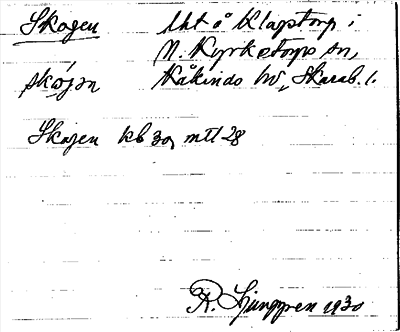 Skogen lht å Klapstorp i
N. Kyrketorps sn,
skógan Kåkinds hd, Skarab. l.
Skogen kb 30, mtl 28
R. Ljunggren 1930